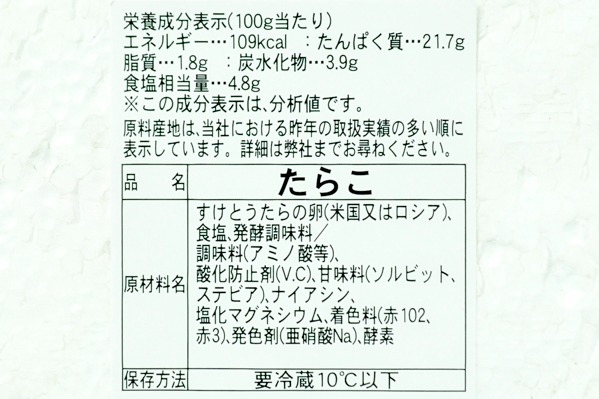 栄養成分表示(100g当たり)
エネルギー…109kcal ：たんぱく質…21.7g
脂質…1.8g ：炭水化物…3.9g
食塩相当量…4.8g
※この成分表示は、分析値です。
原料産地は、当社における昨年の取扱実績の多い順に
表示しています。詳細は弊社までお尋ねください。
品 名 たらこ
原材料名
すけとうたらの卵(米国又はロシア)、
食塩、発酵調味料／
調味料(アミノ酸等)、
酸化防止剤(V.C)、甘味料(ソルビット、
ステビア)、ナイアシン、
塩化マグネシウム、着色料(赤102、
赤3)、発色剤(亜硝酸Na)、酵素
保存方法 要冷蔵10℃以下